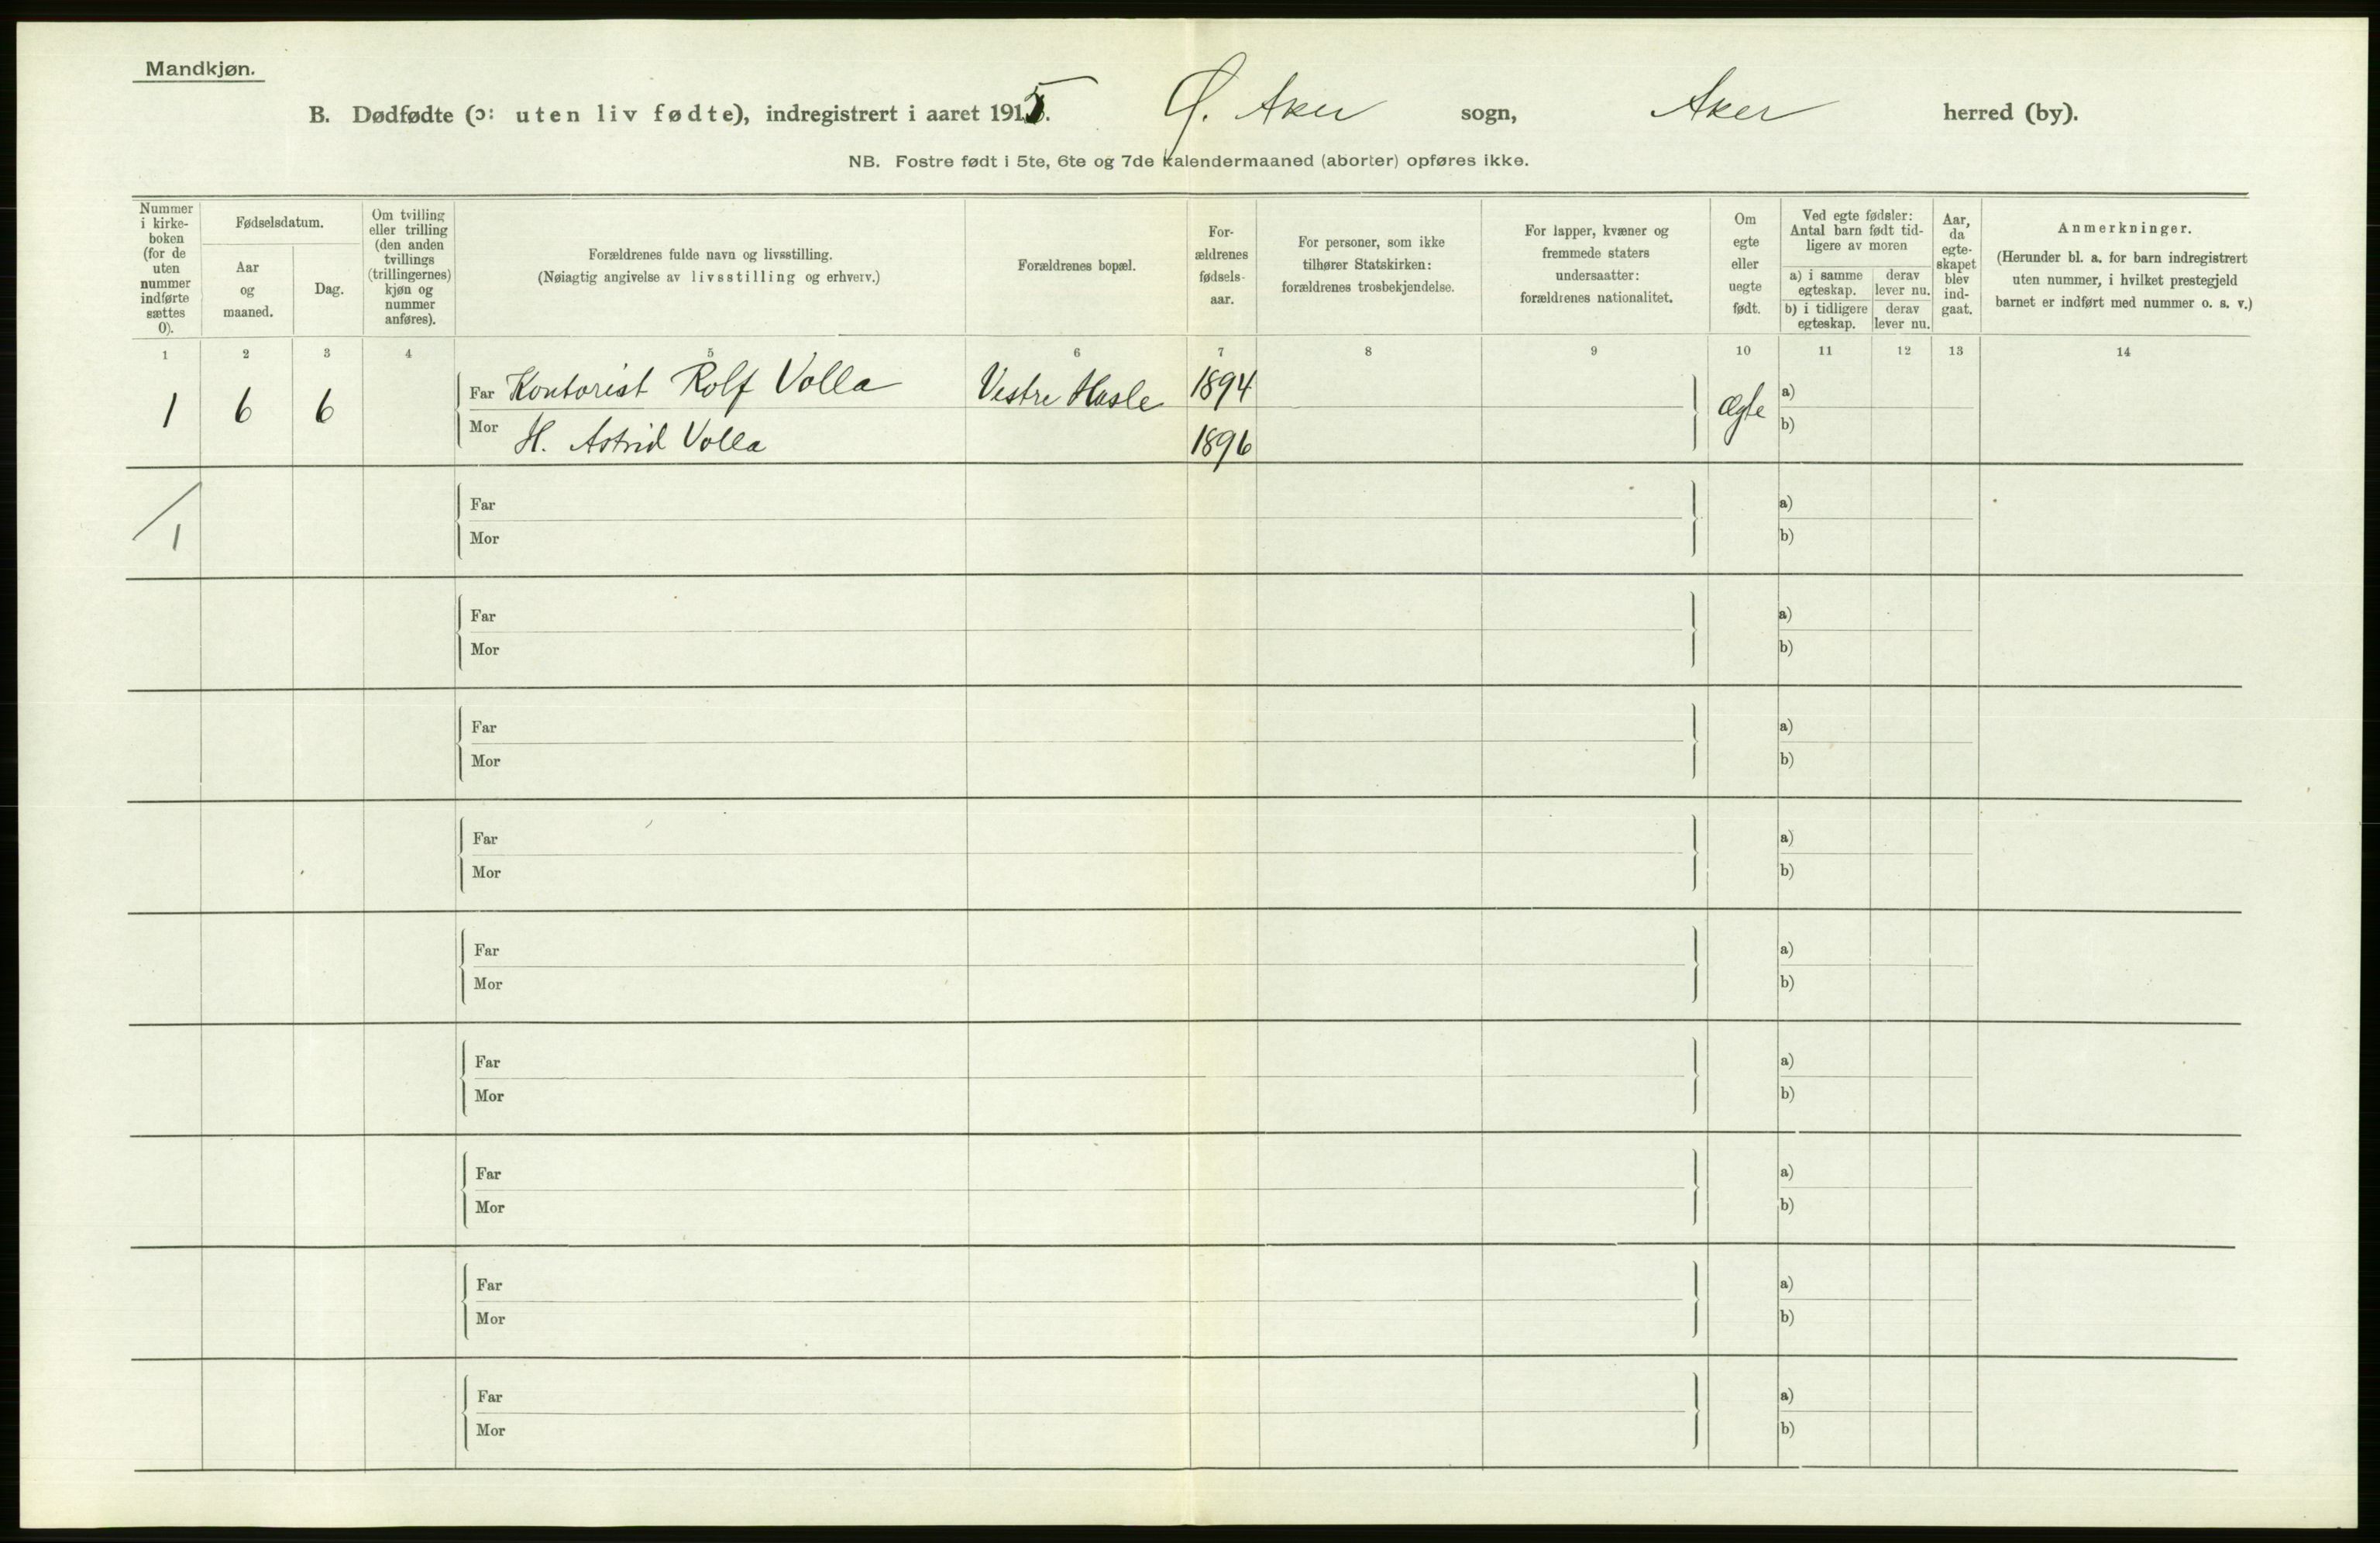 Mandkjøn.
B. Dødfødte (ɔ: uten liv fødte), indregistrert i aaret 1915. Ø. Aker sogn, Aker herred (by).
NB. Fostre født i 5te, 6te og 7de kalendermaaned (aborter) opføres ikke.
Nummer
i kirke-
boken
(for de
uten
nummer
indførte
sættes
0).
Fødselsdatum.
Aar
og
maaned.
Dag.
Om tvilling
eller trilling
(den anden
tvillings
(trillingernes)
kjøn og
nummer
anføres).
Forældrenes fulde navn og livsstilling.
(Nøiagtig angivelse av livsstilling og erhverv.)
Forældrenes bopæl.
For-
ældrenes
fødsels-
aar.
For personer, som ikke
tilhører Statskirken:
forældrenes trosbekjendelse.
For lapper, kvæner og
fremmede staters
undersaatter:
forældrenes nationalitet.
Om
egte
eller
uegte
født.
Ved egte fødsler:
Antal barn født tid-
ligere av moren
a) i samme
egteskap.
derav
lever nu.
b) i tidligere
egteskap.
derav
lever nu.
Aar,
da
egte-
skapet
blev
ind-
gaat.
Anmerkninger.
(Herunder bl. a. for barn indregistrert
uten nummer, i hvilket prestegjeld
barnet er indført med nummer o. s. v.)
1 2 3 4 5 6 7 8 9 10 11 12 13 14
1 6 6 Far Kontorist Rolf Volla Vestre Hasle 1894 Ægte a)
Mor H. Astrid Volla 1896 b)
Far a)
1 Mor b)
Far a)
Mor b)
Far a)
Mor b)
Far a)
Mor b)
Far a)
Mor b)
Far a)
Mor b)
Far a)
Mor b)
Far a)
Mor b)
Far a)
Mor b)